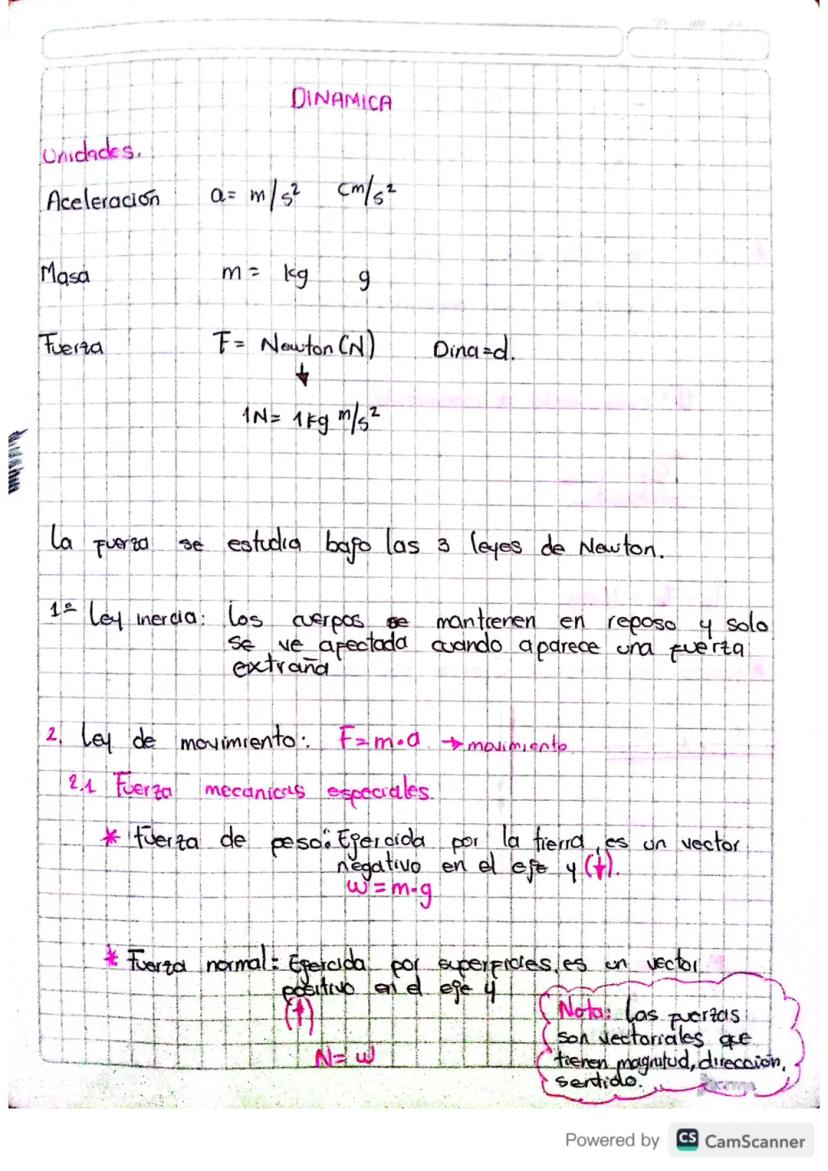 DINAMICA
Unidades.
Aceleración a= m/s² cm/s²
Masa m= kg g
Fuerza F= Newton (N) Dina=d.
1N= 1kg m/s²
La fuerza se estudia bajo las 3 leyes de Newton.
1ª Ley inercia: Los cuerpos se mantienen en reposo y solo
se ve afectada cuando aparece una fuerza
extraña
2. Ley de movimiento: F=m•a → movimiento
2.1 Fuerza mecanicas especiales.
* fuerza de peso: Ejercida por la tierra, es un vector
negativo en el eje y (↓).
w=m•g
* Fuerza normal: Ejercida por superficies, es un vector
positivo en el eje y
(↑)
N= w
Nota: Las fuerzas
son vectoriales que
tienen magnitud, dirección,
sentido.
Powered by CS CamScanner